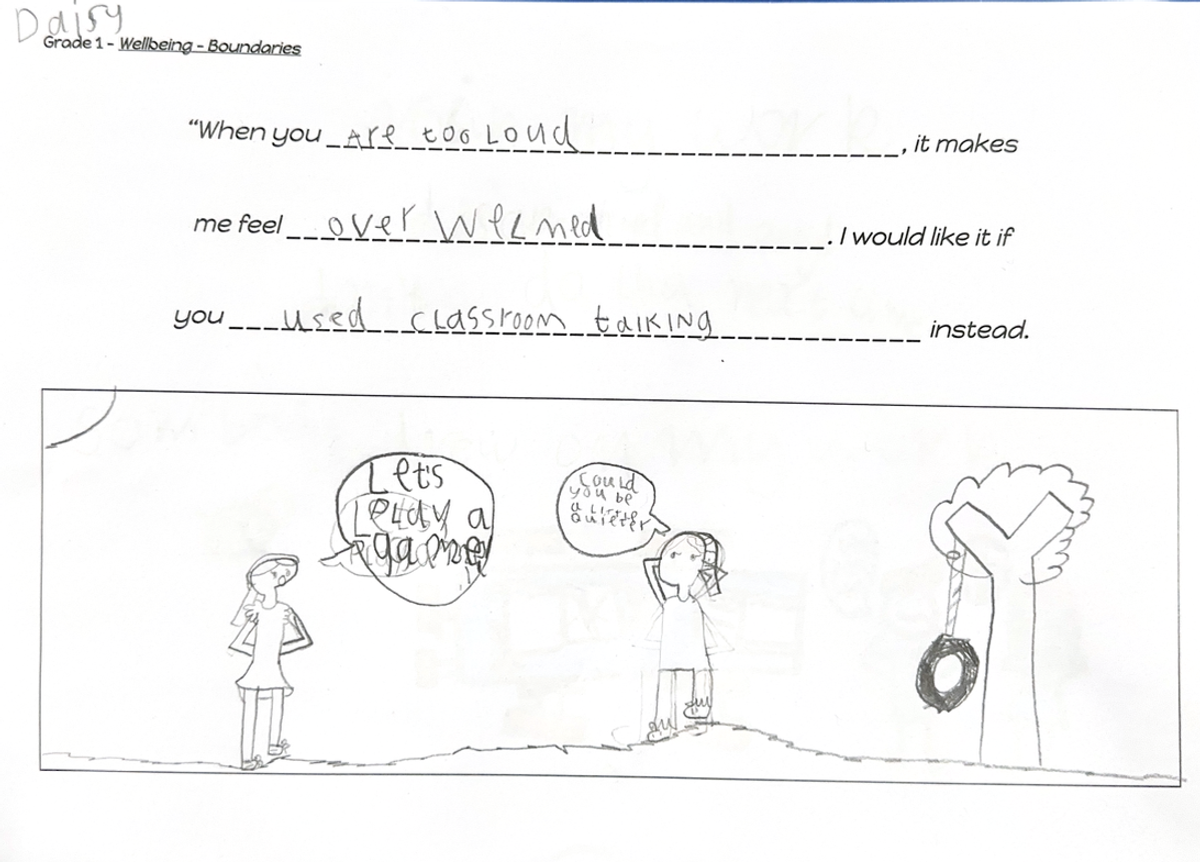 Daisy
Grade 1 - Wellbeing - Boundaries
"When you Are too Loud, it makes
me feel over Welmed. I would like it if
you used classroom talking instead.
Let's
a
could
you be
a little
quieter